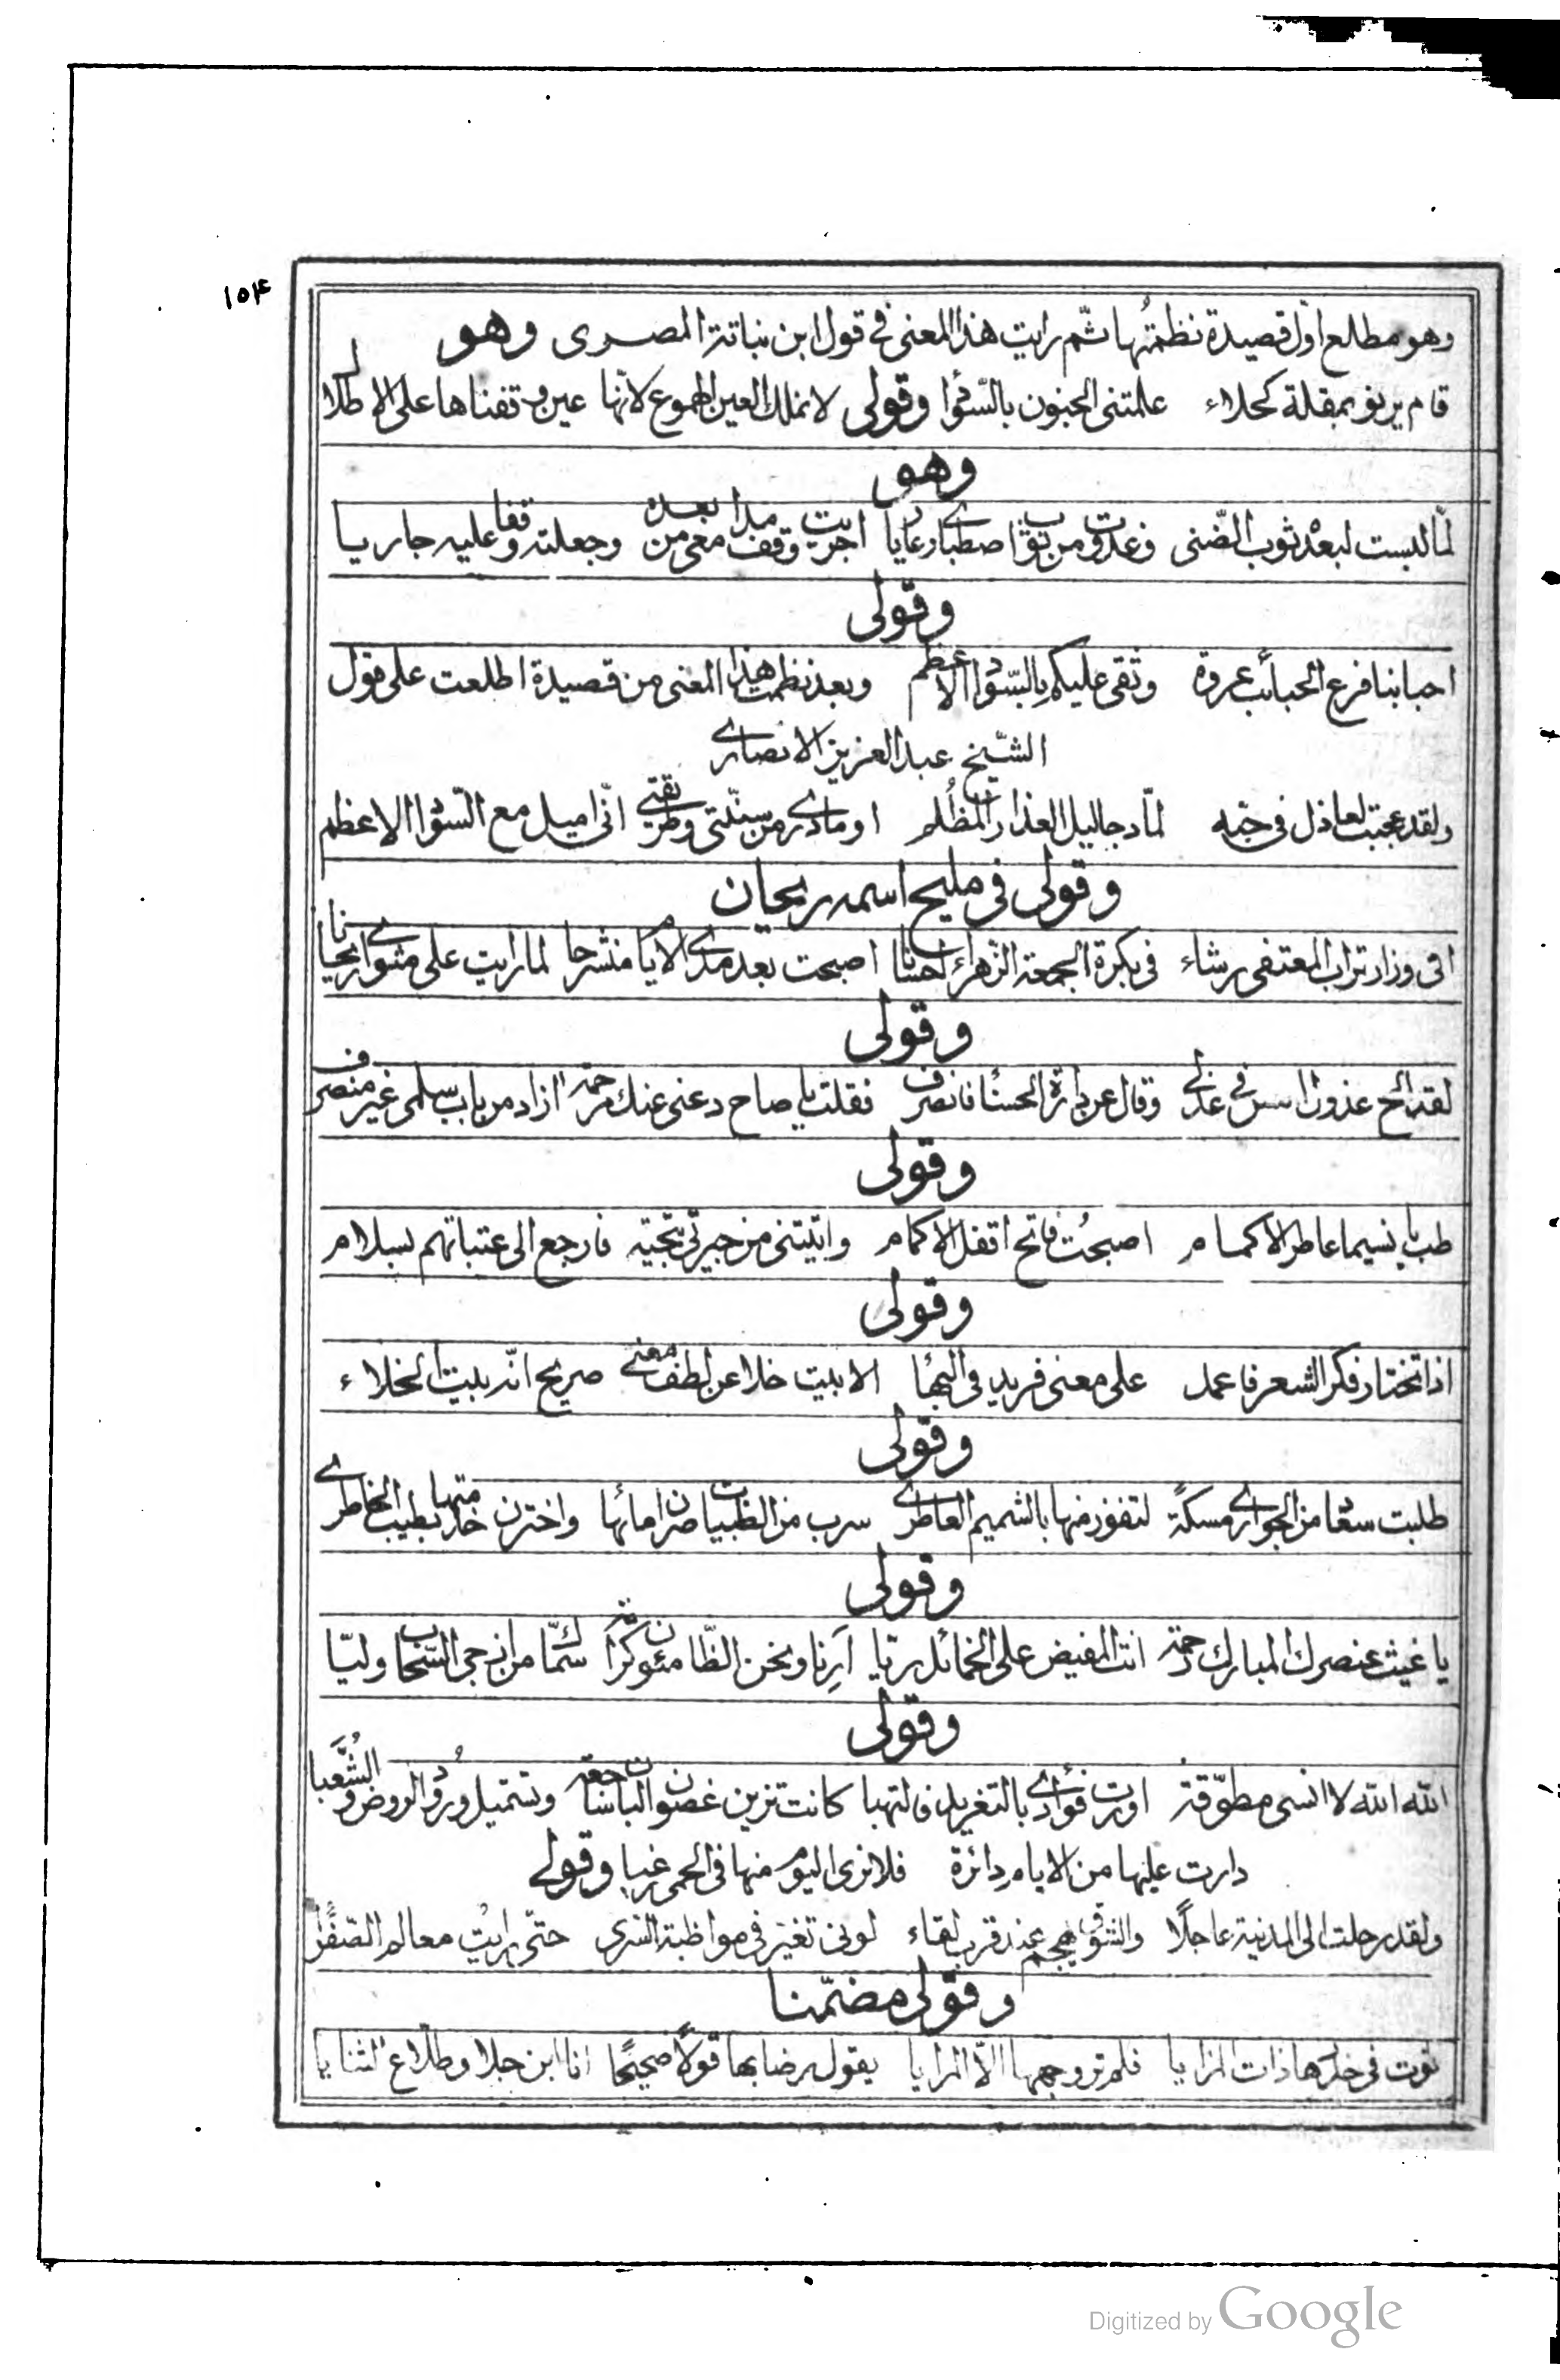 ١٥٤
وهو مطلع اوّل قصيدة نظمتُها ثّم رايت هذا المعنى فى قول ابن نباتة المصرى وهو
قام يرنو بمقلة كحلاء علمتنى الجنون بالسّودا وقولى لا تملك العين الهموع لانّها عين وقفناها على الاطلا
وهو
لمّا لبست لبعْده ثوب الضّنى وغدوت من ثوب اصطبارى عاريا اجريت وقف مدا معى من بعده وجعلته وقفا عليه جاريا
وقولى
احبابنا فرع الحبائب عروة وثقى عليكم بالسّواد الاعظم وبعد نظمت هذا المعنى من قصيدة اطلعت على قول
الشّيخ عبد العزيز الانصارى
ولقد عجبت لعاذل فى حبّه لمّا دجا ليل العذار المُظلم او ما درى من سنّتى وطريقتى انّى اميل مع السّواد الاعظم
وقولى فى مليح اسمه ريحان
اتى وزار تراب المعتفى رشاء فى بكرة الجمعة الزهراء احسانا اصبحت بعد مدى الايام منشرحا لما رايت على مثواى ريحانا
وقولى
لقد الح عذول فى وقال عن دارة الحسنا فانصرف فقلت يا صاح دعنى عنك مرحمة ازاد من باب سلمى غير منصرف
وقولى
طب يا نسيما عاطر الاكمام اصبحُت فاتح اقفل الاكمام واتيتنى من جيرتى بتحية فارجع الى عتباتهم بسلام
وقولى
اذا تختار فكر الشعر فاعمد على معنى فريد فى البهُا الا بيت خلا عن لطف معنى صريح انّه بيت الخلاء
وقولى
طلبت سعاد من الجوارى مسكةً لتفوز منها بالشميم العاطرى سرب من الظبيات صرن امائها واخترن خدمتها بطيب الخاطرى
وقولى
يا غيث عنصرك المبارك رحمة انت المفيض على الخمائل ريّا ونحن الظّامئون سمّاك من ازجى السّحاب وليّا
وقولى
الله الله لا انسى مطوّقة اورت فوادى بالتغريد فالتهبا كانت تزين غصون البان ساجعة وتستميل ورُود الروض والشُّعبا
دارت عليها من الايام دائرة فلا نرى اليوم منها فى الحمى زغبا وقولى
ولقد رحلت الى المدينة عاجلًا والشوق هيجه عند قرب لقاء لونى تغيّر فى مواظبة السّرى حتّى رايُت معالم الصّفراُ
وقولى مضمّنا
ثوت فى خدرها ذات المزايا فلم تر وجهها الّا المرايا يقول رضابها قولًا صحيحًا انا ابن جلا وطلّاع الثنايا
Digitized by Google